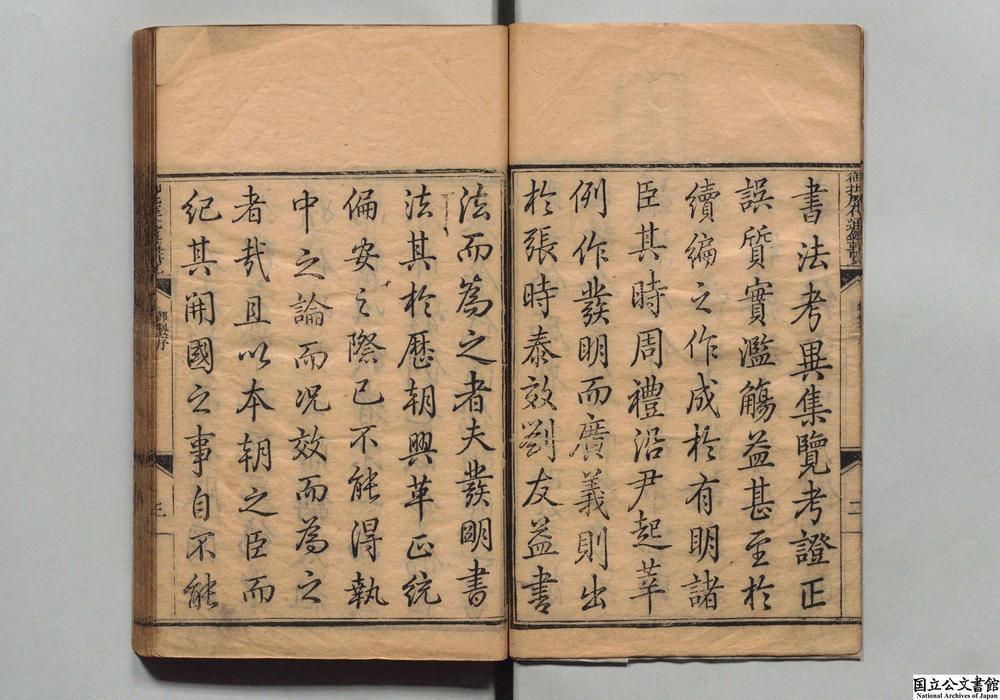 書法考異集覽考證正
誤質實濫觴益甚至於
續編之作成於有明諸
臣其時周禮沿尹起莘
例作發明而廣義則出
於張時泰效劉友益書
法而為之者夫發明書
法其於歷朝興革正統
偏安之際已不能得執
中之論而況效而為之
者哉且以本朝之臣而
紀其開國之事自不能
御製序
三
二
国立公文書館
National Archives of Japan